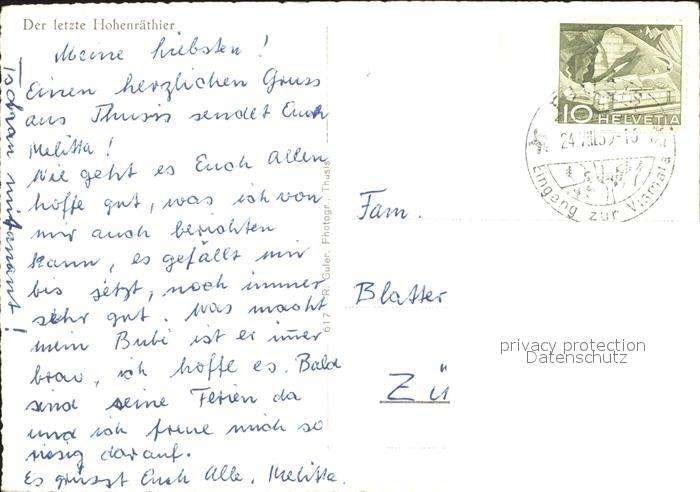 Der letzte Hohenräthier
Meine Liebsten !
Einen herzlichen Gruss
aus Thusis sendet Euch
Melitta !
Wie geht es Euch Allen
hoffe gut, was ich von
mir auch berichten
kann, es gefällt mir
bis jetzt, noch immer
sehr gut. Was macht
mein Bubi ist er imer
brav, ich hoffe es. Bald
sind seine Ferien da
und ich freue mich so
riesig darauf.
Es grüsst Euch Alle, Melitta.
Tschau mitanand !
617 R. Guler, Photogr., Thusis
10 HELVETIA
24.VIII.55-16
Eingang zur Viamala
Fam.
Blatter
Zü
privacy protection
Datenschutz